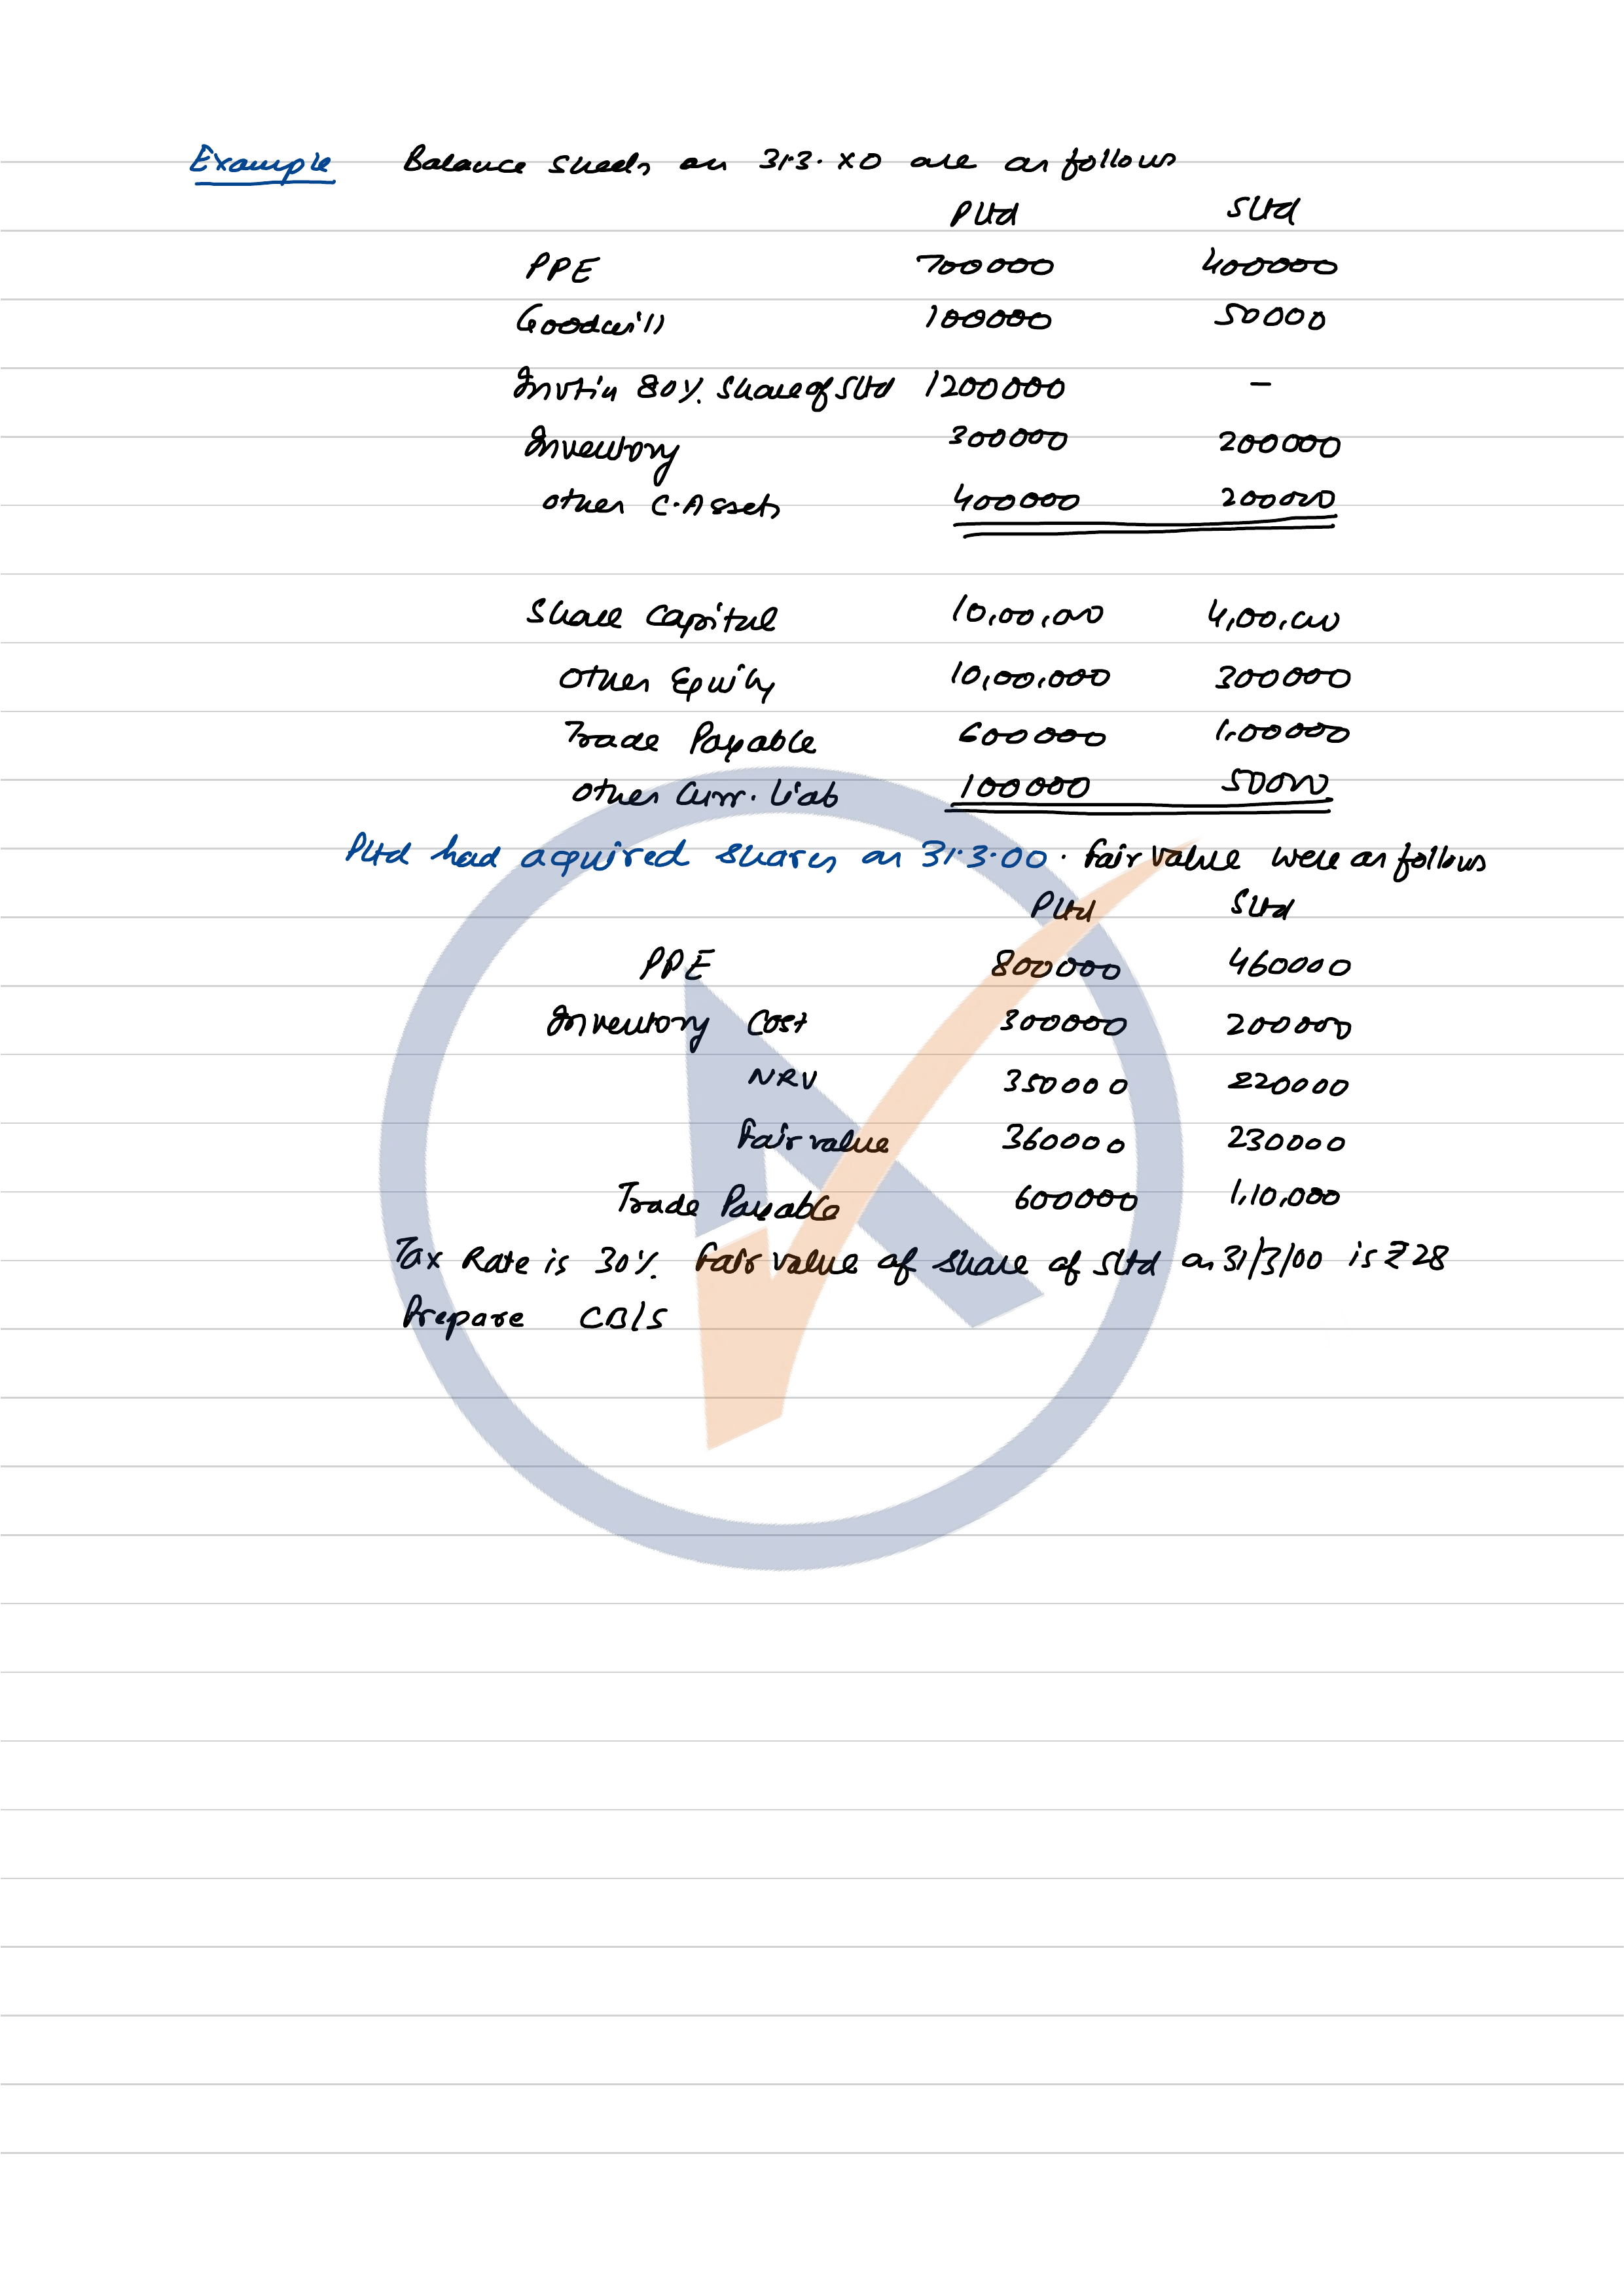 Example Balance Sheets on 31.3.X0 are as follows
P Ltd S Ltd
PPE 700000 400000
Goodwill 100000 50000
Invt in 80% Share of S Ltd 1200000 –
Inventory 300000 200000
other C.Assets 400000 200000
Share Capital 10,00,000 4,00,000
Other Equity 10,00,000 300000
Trade Payable 600000 1,00000
other Curr. Liab 100000 50000
P Ltd had acquired shares on 31.3.00. Fair Value were as follows
P Ltd S Ltd
PPE 800000 460000
Inventory Cost 300000 200000
NRV 350000 220000
Fair value 360000 230000
Trade Payable 600000 1,10,000
Tax Rate is 30% Fair value of share of S Ltd on 31/3/00 is ₹ 28
Prepare CB/S